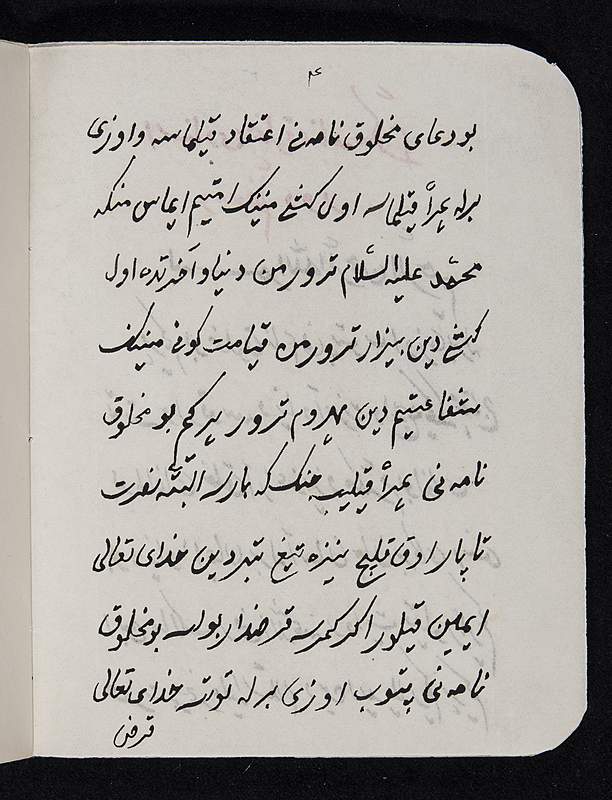 ۴
بو دعای مخلوق نامه نی اعتقاد قیلماسه و اوزی
برله قیلماسه اول کشی مننیک امتیم ایماس منکه
محمد علیه السّلام ترورمن دنیا و آخرتده اول
کشی دین بیزار ترورمن قیامت کونی مننیک
شفاعتیم دین محروم ترور هر کیم بو مخلوق
نامه نی قیلیب جنک که بارسه البتّه نصرت
تاپار اوق قلیچ نیزه تیغ تبردین خدای تعالی
ایمین قیلور اکر کمرسه قرضدار بولسه بو مخلوق
نامه نی بتوب اوزی برله توته خدای تعالی
قرض